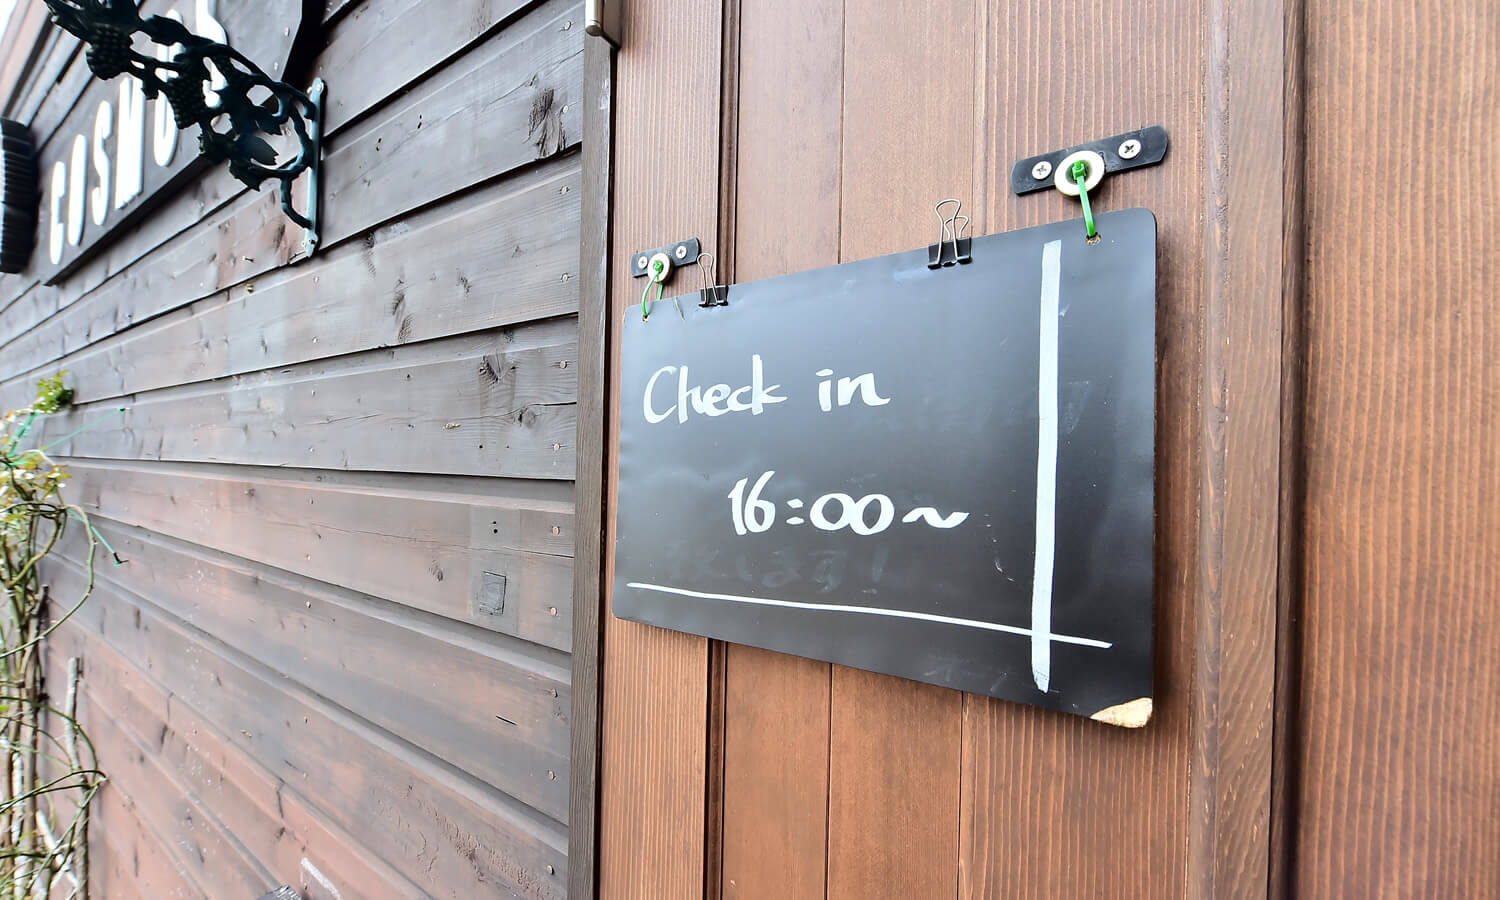 COSMOS
Check in
16:00~